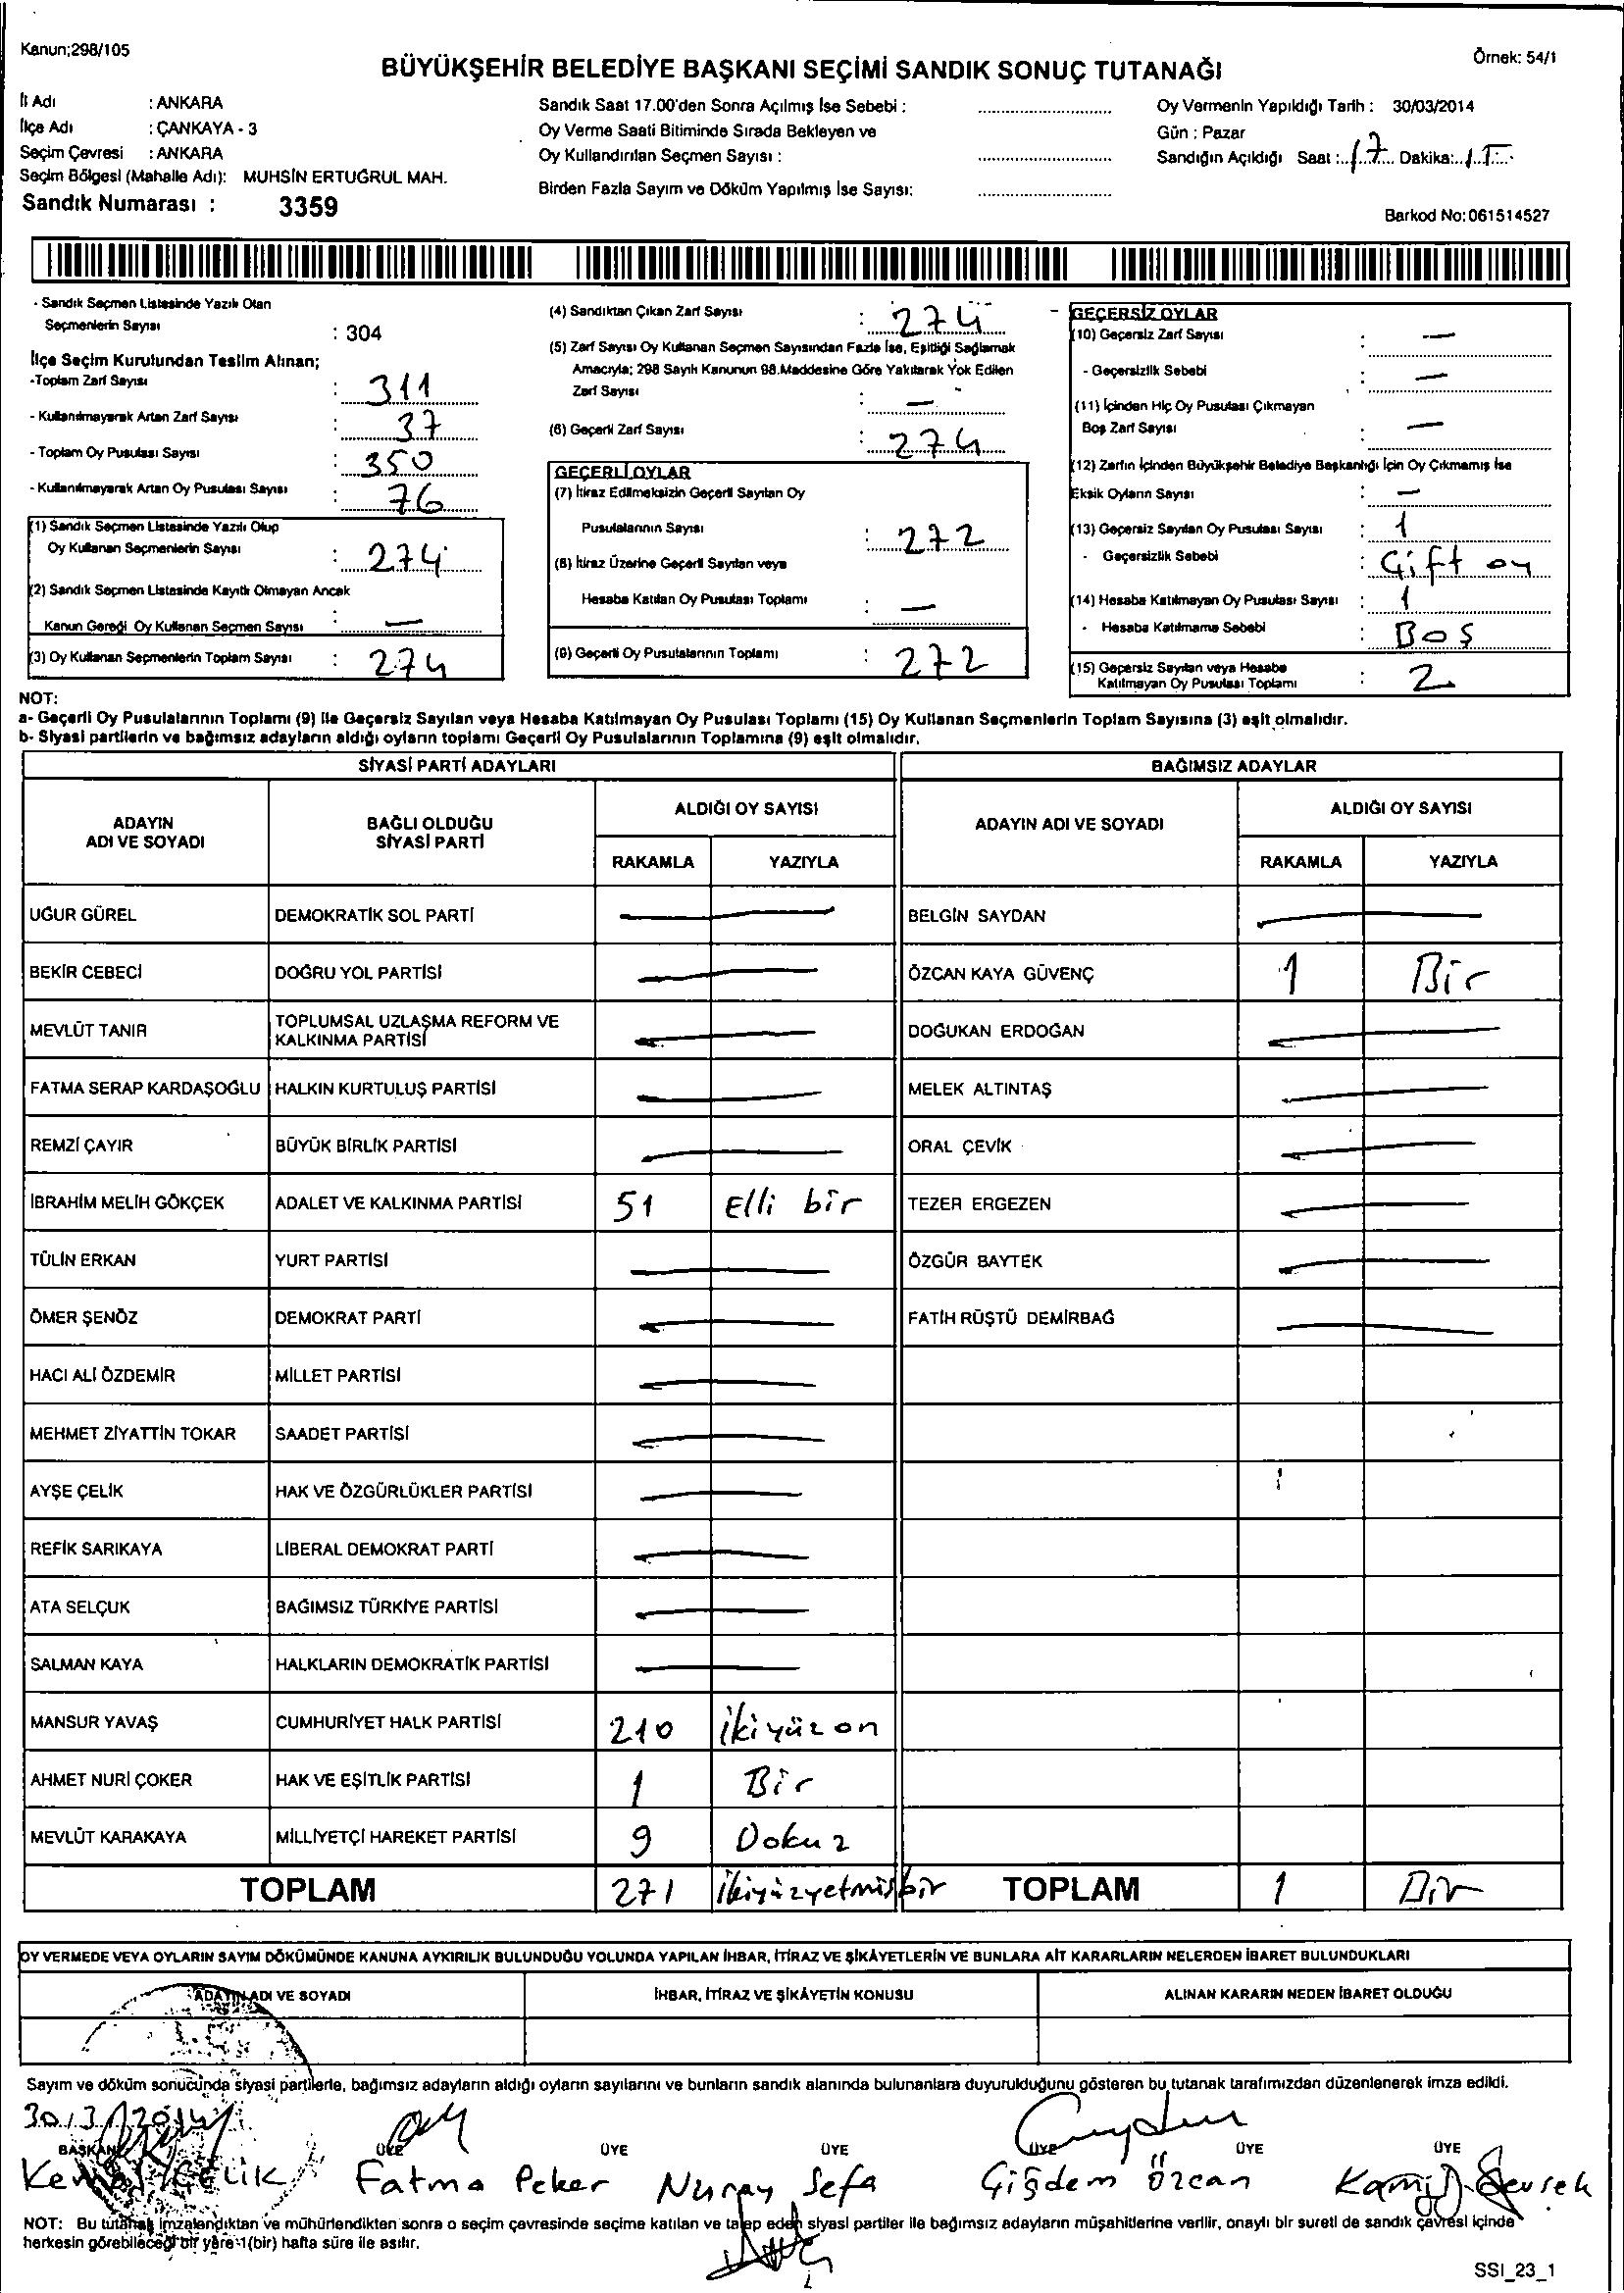 Kanun;298/105
Örnek: 54/1
BÜYÜKŞEHİR BELEDİYE BAŞKANI SEÇİMİ SANDIK SONUÇ TUTANAĞI
İl Adı : ANKARA
İlçe Adı : ÇANKAYA - 3
Seçim Çevresi : ANKARA
Seçim Bölgesi (Mahalle Adı): MUHSİN ERTUĞRUL MAH.
Sandık Numarası : 3359
Sandık Saat 17.00'den Sonra Açılmış İse Sebebi :
Oy Verme Saati Bitiminde Sırada Bekleyen ve
Oy Kullandırılan Seçmen Sayısı :
Birden Fazla Sayım ve Döküm Yapılmış İse Sayısı:
Oy Vermenin Yapıldığı Tarih : 30/03/2014
Gün : Pazar
Sandığın Açıldığı Saat : 17 Dakika:
Barkod No:061514527
- Sandık Seçmen Listesinde Yazılı Olan
Seçmenlerin Sayısı : 304
İlçe Seçim Kurulundan Teslim Alınan;
-Toplam Zarf Sayısı : 311
- Kullanılmayarak Artan Zarf Sayısı : 37
- Toplam Oy Pusulası Sayısı : 350
- Kullanılmayarak Artan Oy Pusulası Sayısı : 76
(1) Sandık Seçmen Listesinde Yazılı Olup
Oy Kullanan Seçmenlerin Sayısı : 274
(2) Sandık Seçmen Listesinde Kayıtlı Olmayan Ancak
Kanun Gereği Oy Kullanan Seçmen Sayısı : —
(3) Oy Kullanan Seçmenlerin Toplam Sayısı : 274
(4) Sandıktan Çıkan Zarf Sayısı : 274
(5) Zarf Sayısı Oy Kullanan Seçmen Sayısından Fazla İse, Eşitliği Sağlamak
Amacıyla; 298 Sayılı Kanunun 98.Maddesine Göre Yakılarak Yok Edilen
Zarf Sayısı : —
(6) Geçerli Zarf Sayısı : 274
GEÇERLİ OYLAR
(7) İtiraz Edilmeksizin Geçerli Sayılan Oy
Pusulalarının Sayısı : 272
(8) İtiraz Üzerine Geçerli Sayılan veya
Hesaba Katılan Oy Pusulası Toplamı : —
(9) Geçerli Oy Pusulalarının Toplamı : 272
GEÇERSİZ OYLAR
(10) Geçersiz Zarf Sayısı : —
- Geçersizlik Sebebi : —
(11) İçinden Hiç Oy Pusulası Çıkmayan
Boş Zarf Sayısı : —
(12) Zarfın İçinden Büyükşehir Belediye Başkanlığı İçin Oy Çıkmamış İse
Eksik Oyların Sayısı : —
(13) Geçersiz Sayılan Oy Pusulası Sayısı : 1
- Geçersizlik Sebebi : Çift oy
(14) Hesaba Katılmayan Oy Pusulası Sayısı : 1
- Hesaba Katılmama Sebebi : Boş
(15) Geçersiz Sayılan veya Hesaba
Katılmayan Oy Pusulası Toplamı : 2
NOT:
a- Geçerli Oy Pusulalarının Toplamı (9) ile Geçersiz Sayılan veya Hesaba Katılmayan Oy Pusulası Toplamı (15) Oy Kullanan Seçmenlerin Toplam Sayısına (3) eşit olmalıdır.
b- Siyasi partilerin ve bağımsız adayların aldığı oyların toplamı Geçerli Oy Pusulalarının Toplamına (9) eşit olmalıdır.
SİYASİ PARTİ ADAYLARI
BAĞIMSIZ ADAYLAR
ADAYIN
ADI VE SOYADI
BAĞLI OLDUĞU
SİYASİ PARTİ
ALDIĞI OY SAYISI
RAKAMLA YAZIYLA
ADAYIN ADI VE SOYADI
ALDIĞI OY SAYISI
RAKAMLA YAZIYLA
UĞUR GÜREL DEMOKRATİK SOL PARTİ — BELGİN SAYDAN —
BEKİR CEBECİ DOĞRU YOL PARTİSİ — ÖZCAN KAYA GÜVENÇ 1 Bir
MEVLÜT TANIR TOPLUMSAL UZLAŞMA REFORM VE
KALKINMA PARTİSİ — DOĞUKAN ERDOĞAN —
FATMA SERAP KARDAŞOĞLU HALKIN KURTULUŞ PARTİSİ — MELEK ALTINTAŞ —
REMZİ ÇAYIR BÜYÜK BİRLİK PARTİSİ — ORAL ÇEVİK —
İBRAHİM MELİH GÖKÇEK ADALET VE KALKINMA PARTİSİ 51 Elli bir TEZER ERGEZEN —
TÜLİN ERKAN YURT PARTİSİ — ÖZGÜR BAYTEK —
ÖMER ŞENÖZ DEMOKRAT PARTİ — FATİH RÜŞTÜ DEMİRBAĞ —
HACI ALİ ÖZDEMİR MİLLET PARTİSİ —
MEHMET ZİYATTİN TOKAR SAADET PARTİSİ —
AYŞE ÇELİK HAK VE ÖZGÜRLÜKLER PARTİSİ —
REFİK SARIKAYA LİBERAL DEMOKRAT PARTİ —
ATA SELÇUK BAĞIMSIZ TÜRKİYE PARTİSİ —
SALMAN KAYA HALKLARIN DEMOKRATİK PARTİSİ —
MANSUR YAVAŞ CUMHURİYET HALK PARTİSİ 210 ikiyüz on
AHMET NURİ ÇOKER HAK VE EŞİTLİK PARTİSİ 1 Bir
MEVLÜT KARAKAYA MİLLİYETÇİ HAREKET PARTİSİ 9 Dokuz
TOPLAM 271 ikiyüzyetmişbir TOPLAM 1 Bir
OY VERMEDE VEYA OYLARIN SAYIM DÖKÜMÜNDE KANUNA AYKIRILIK BULUNDUĞU YOLUNDA YAPILAN İHBAR, İTİRAZ VE ŞİKÂYETLERİN VE BUNLARA AİT KARARLARIN NELERDEN İBARET BULUNDUKLARI
ADAYIN ADI VE SOYADI İHBAR, İTİRAZ VE ŞİKÂYETİN KONUSU ALINAN KARARIN NEDEN İBARET OLDUĞU
Sayım ve döküm sonucunda siyasi partilerle, bağımsız adayların aldığı oyların sayılarını ve bunların sandık alanında bulunanlara duyurulduğunu gösteren bu tutanak tarafımızdan düzenlenerek imza edildi.
30/3/2014
BAŞKAN ÜYE ÜYE ÜYE ÜYE ÜYE ÜYE
Kemal Çelik Fatma Peker Nuray Sefa Çiğdem Özcan
NOT: Bu tutanak imzalandıktan ve mühürlendikten sonra o seçim çevresinde seçime katılan ve talep eden siyasi partiler ile bağımsız adayların müşahitlerine verilir, onaylı bir sureti de sandık çevresi içinde
herkesin görebileceği bir yere 1(bir) hafta süre ile asılır.
SSI_23_1